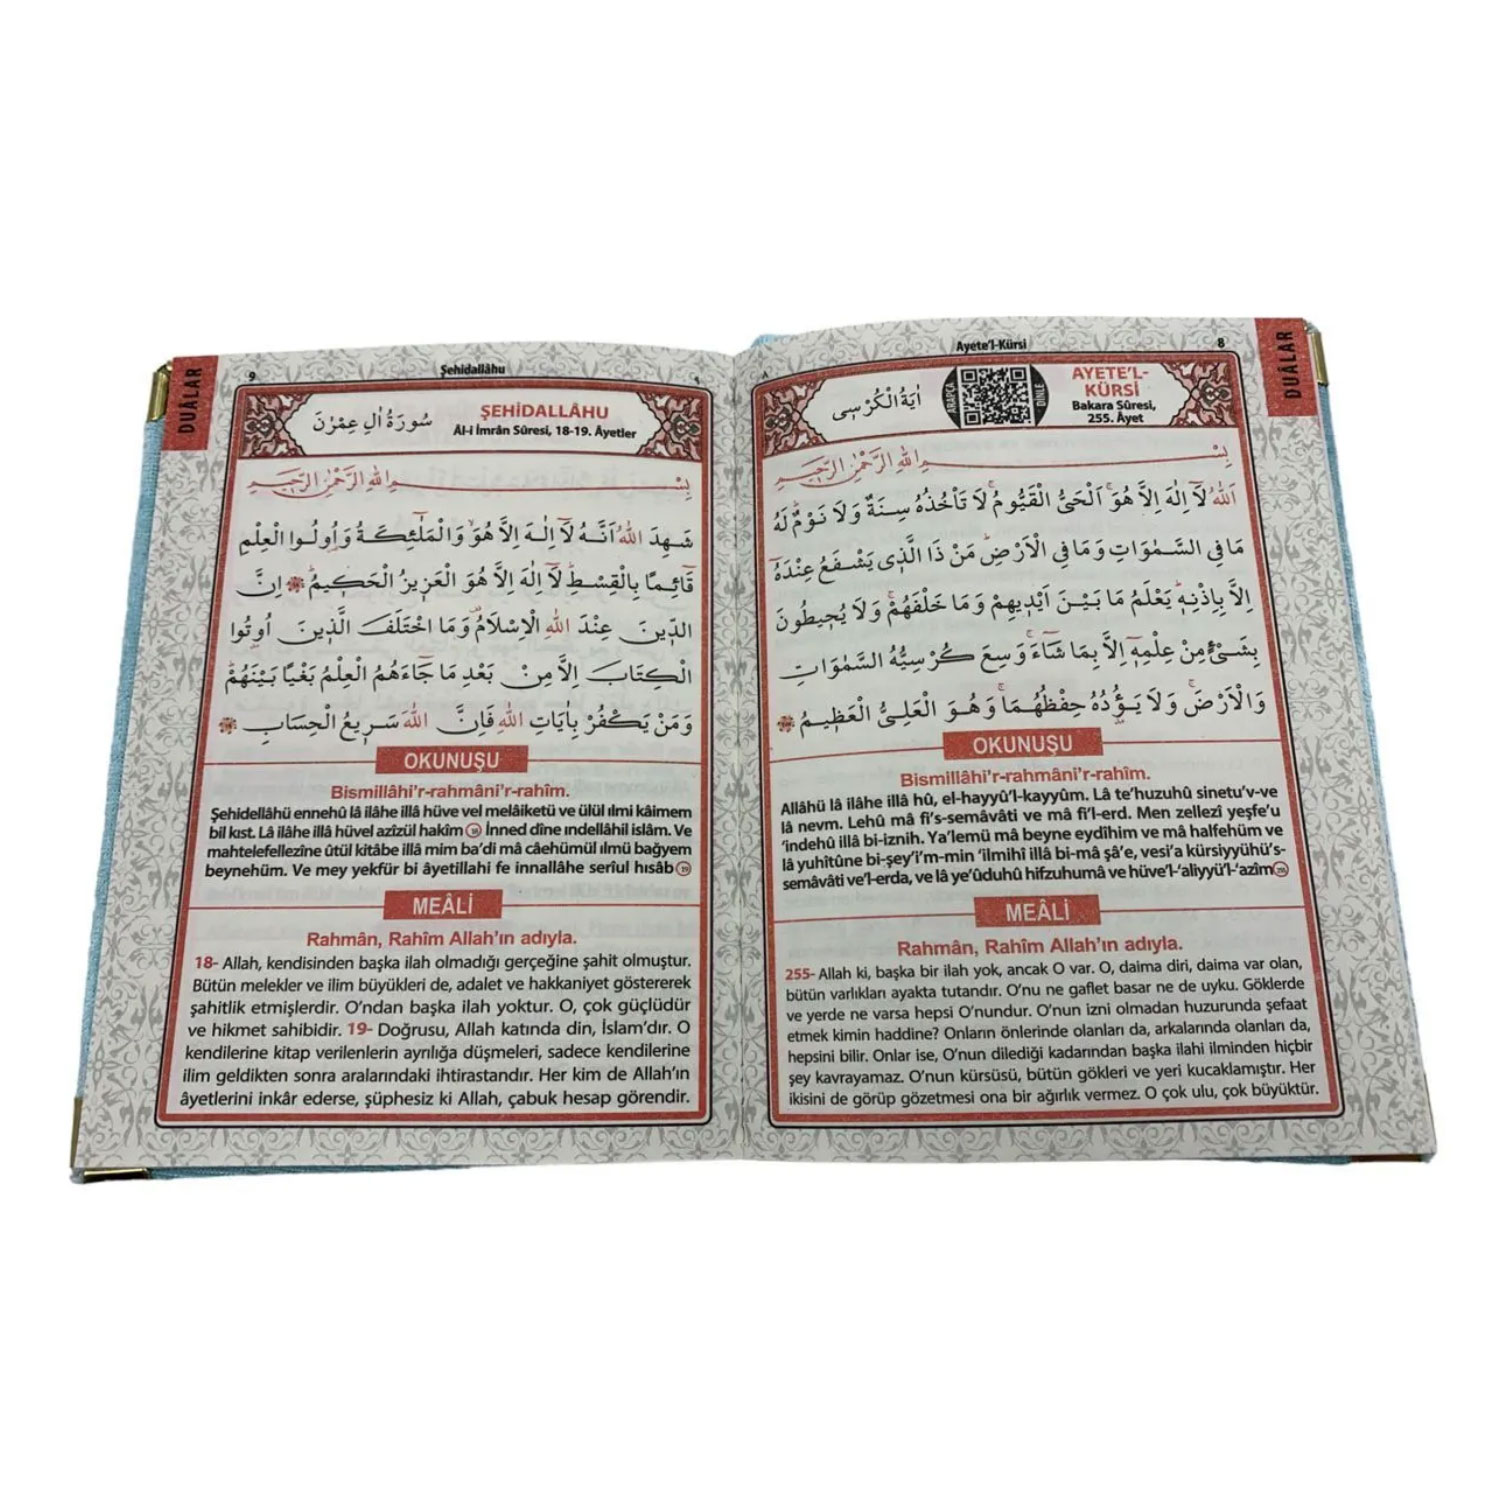 DUÂLAR
8
Ayete'l-Kürsi
٨
AYETE'L-
KÜRSİ
Bakara Sûresi,
255. Âyet
ARAPÇA
DİNLE
اٰيَةُ الْكُرْسِى
بِسْــــمِ اللهِ الرَّحْمٰنِ الرَّحِيمِ
اَللهُ لَآ اِلٰهَ اِلَّا هُوَۚ اَلْحَىُّ الْقَيُّومُۚ لَا تَأْخُذُهُ سِنَةٌ وَلَا نَوْمٌۜ لَهُ
مَا فِى السَّمٰوَاتِ وَمَا فِى الْاَرْضِۜ مَنْ ذَا الَّذِى يَشْفَعُ عِنْدَهُٓ
اِلَّا بِاِذْنِهِۜ يَعْلَمُ مَا بَيْنَ اَيْدِيهِمْ وَمَا خَلْفَهُمْۚ وَلَا يُحِيطُونَ
بِشَىْءٍ مِنْ عِلْمِهِٓ اِلَّا بِمَا شَٓاءَۚ وَسِعَ كُرْسِيُّهُ السَّمٰوَاتِ
وَالْاَرْضَۚ وَلَا يَؤُدُهُ حِفْظُهُمَاۚ وَهُوَ الْعَلِىُّ الْعَظِيمُ
OKUNUŞU
Bismillâhi'r-rahmâni'r-rahîm.
Allâhü lâ ilâhe illâ hû, el-hayyû'l-kayyûm. Lâ te'huzuhû sinetu'v-ve
lâ nevm. Lehû mâ fi's-semâvâti ve mâ fi'l-erd. Men zellezî yeşfe'u
'indehû illâ bi-iznih. Ya'lemü mâ beyne eydîhim ve mâ halfehüm ve
lâ yuhîtûne bi-şey'i'm-min 'ilmihî illâ bi-mâ şâ'e, vesi'a kürsiyyühü's-
semâvâti ve'l-erda, ve lâ ye'ûduhû hifzuhumâ ve hüve'l-'aliyyü'l-'azîm 255
MEÂLİ
Rahmân, Rahîm Allah'ın adıyla.
255- Allah ki, başka bir ilah yok, ancak O var. O, daima diri, daima var olan,
bütün varlıkları ayakta tutandır. O'nu ne gaflet basar ne de uyku. Göklerde
ve yerde ne varsa hepsi O'nundur. O'nun izni olmadan huzurunda şefaat
etmek kimin haddine? Onların önlerinde olanları da, arkalarında olanları da,
hepsini bilir. Onlar ise, O'nun dilediği kadarından başka ilahi ilminden hiçbir
şey kavrayamaz. O'nun kürsüsü, bütün gökleri ve yeri kucaklamıştır. Her
ikisini de görüp gözetmesi ona bir ağırlık vermez. O çok ulu, çok büyüktür.
DUÂLAR
9
Şehidallâhu
٩
ŞEHİDALLÂHU
Âl-i İmrân Sûresi, 18-19. Âyetler
سُورَةُ اٰلِ عِمْرٰنَ
بِسْــــمِ اللهِ الرَّحْمٰنِ الرَّحِيمِ
شَهِدَ اللهُ اَنَّهُ لَآ اِلٰهَ اِلَّا هُوَۙ وَالْمَلٰٓئِكَةُ وَاُولُوا الْعِلْمِ
قَٓائِمًا بِالْقِسْطِۜ لَآ اِلٰهَ اِلَّا هُوَ الْعَزِيزُ الْحَكِيمُۜ اِنَّ
الدِّينَ عِنْدَ اللهِ الْاِسْلَامُ۠ وَمَا اخْتَلَفَ الَّذِينَ اُوتُوا
الْكِتَابَ اِلَّا مِنْ بَعْدِ مَا جَٓاءَهُمُ الْعِلْمُ بَغْيًا بَيْنَهُمْۜ
وَمَنْ يَكْفُرْ بِاٰيَاتِ اللهِ فَاِنَّ اللهَ سَرِيعُ الْحِسَابِ
OKUNUŞU
Bismillâhi'r-rahmâni'r-rahîm.
Şehidellâhü ennehû lâ ilâhe illâ hüve vel melâiketü ve ülül ılmi kâimem
bil kıst. Lâ ilâhe illâ hüvel azîzül hakîm 18 İnned dîne ındellâhil islâm. Ve
mahtelefellezîne ûtül kitâbe illâ mim ba'di mâ câehümül ılmü bağyem
beynehüm. Ve mey yekfür bi âyetillahi fe innallâhe serîul hısâb 19
MEÂLİ
Rahmân, Rahîm Allah'ın adıyla.
18- Allah, kendisinden başka ilah olmadığı gerçeğine şahit olmuştur.
Bütün melekler ve ilim büyükleri de, adalet ve hakkaniyet göstererek
şahitlik etmişlerdir. O'ndan başka ilah yoktur. O, çok güçlüdür
ve hikmet sahibidir. 19- Doğrusu, Allah katında din, İslam'dır. O
kendilerine kitap verilenlerin ayrılığa düşmeleri, sadece kendilerine
ilim geldikten sonra aralarındaki ihtirastandır. Her kim de Allah'ın
âyetlerini inkâr ederse, şüphesiz ki Allah, çabuk hesap görendir.